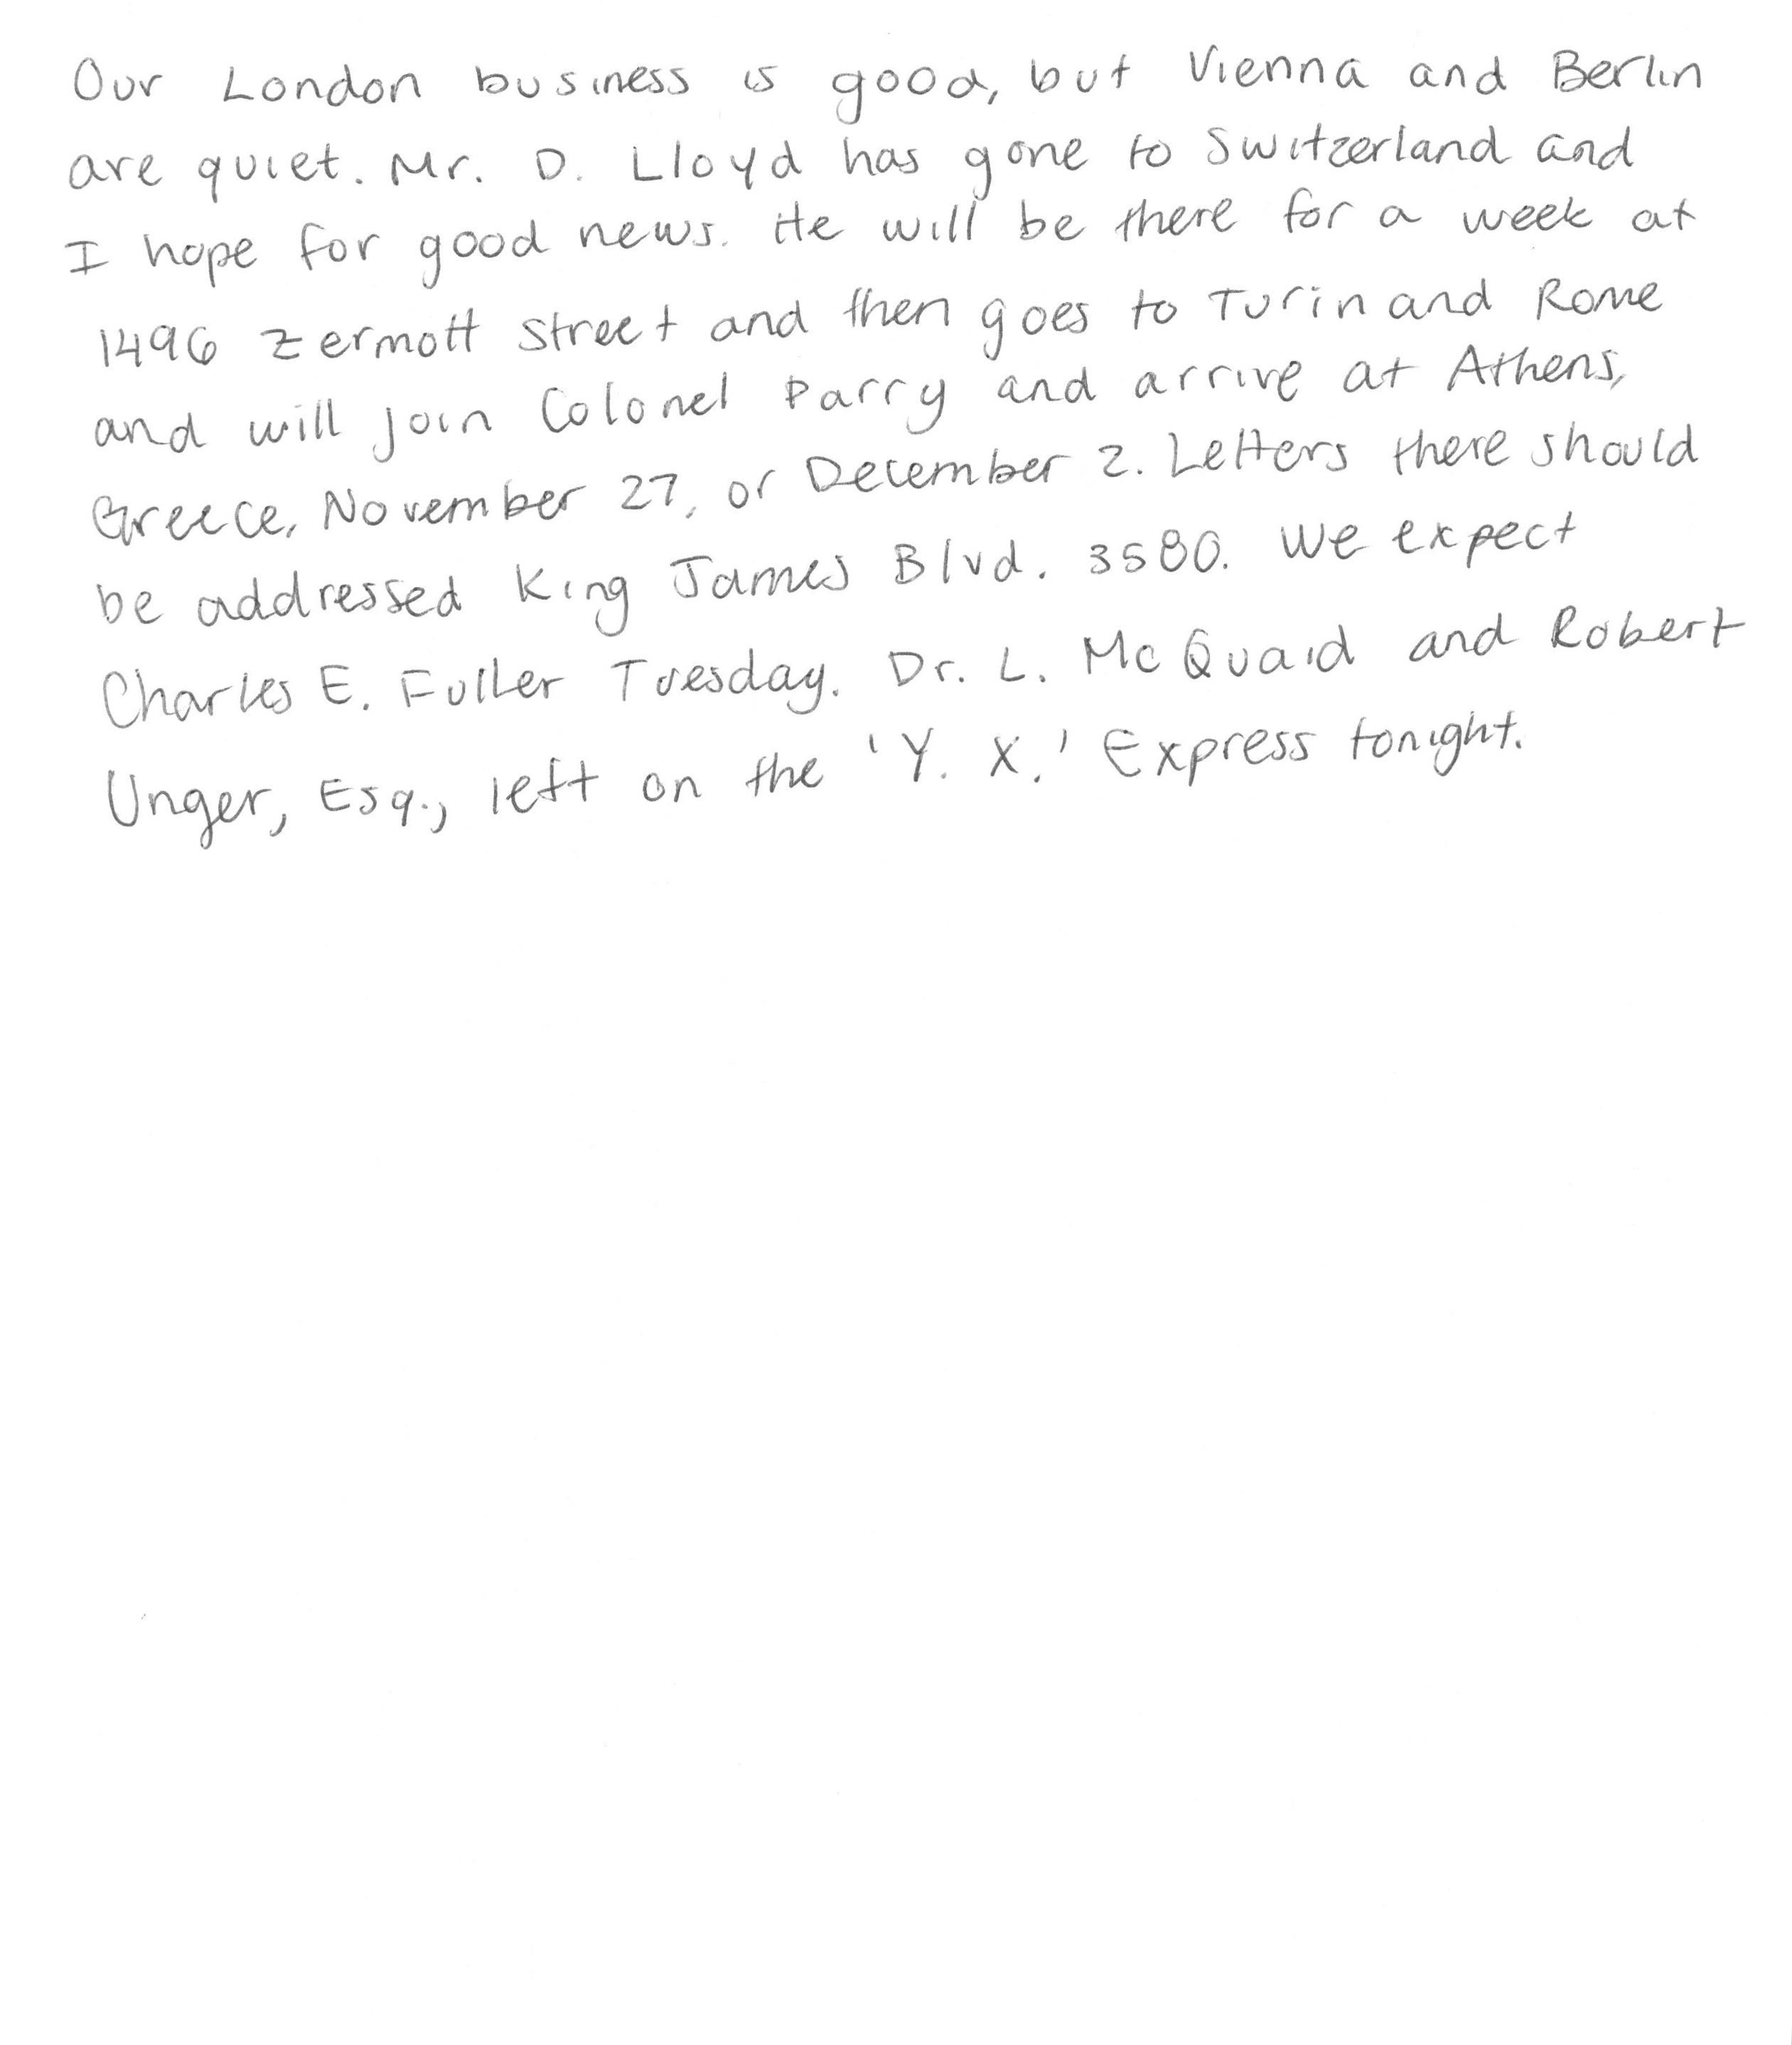 Our London business is good, but Vienna and Berlin
are quiet. Mr. D. Lloyd has gone to Switzerland and
I hope for good news. He will be there for a week at
1496 Zermott Street and then goes to Turin and Rome
and will join Colonel Parry and arrive at Athens,
Greece, November 27, or December 2. Letters there should
be addressed King James Blvd. 3580. We expect
Charles E. Fuller Tuesday. Dr. L. McQuaid and Robert
Unger, Esq., left on the 'Y. X.' Express tonight.